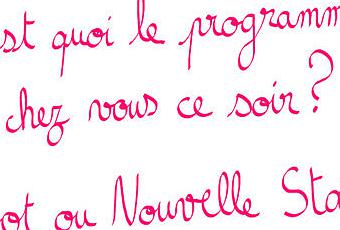 st quoi le programm
chez vous ce soir?
ot ou Nouvelle Sta